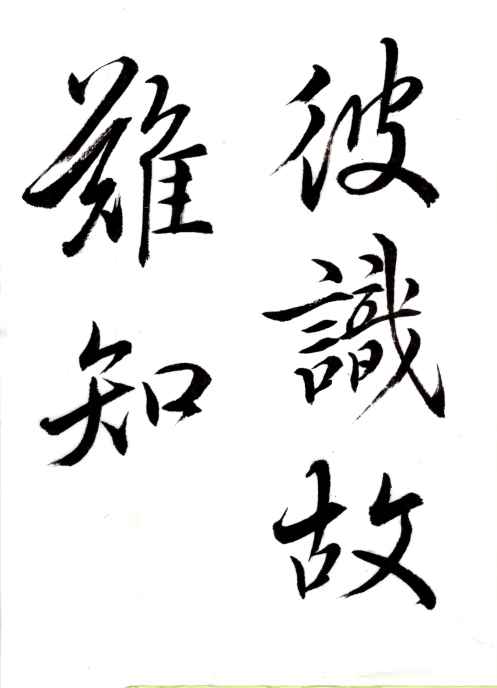 彼識故
難知